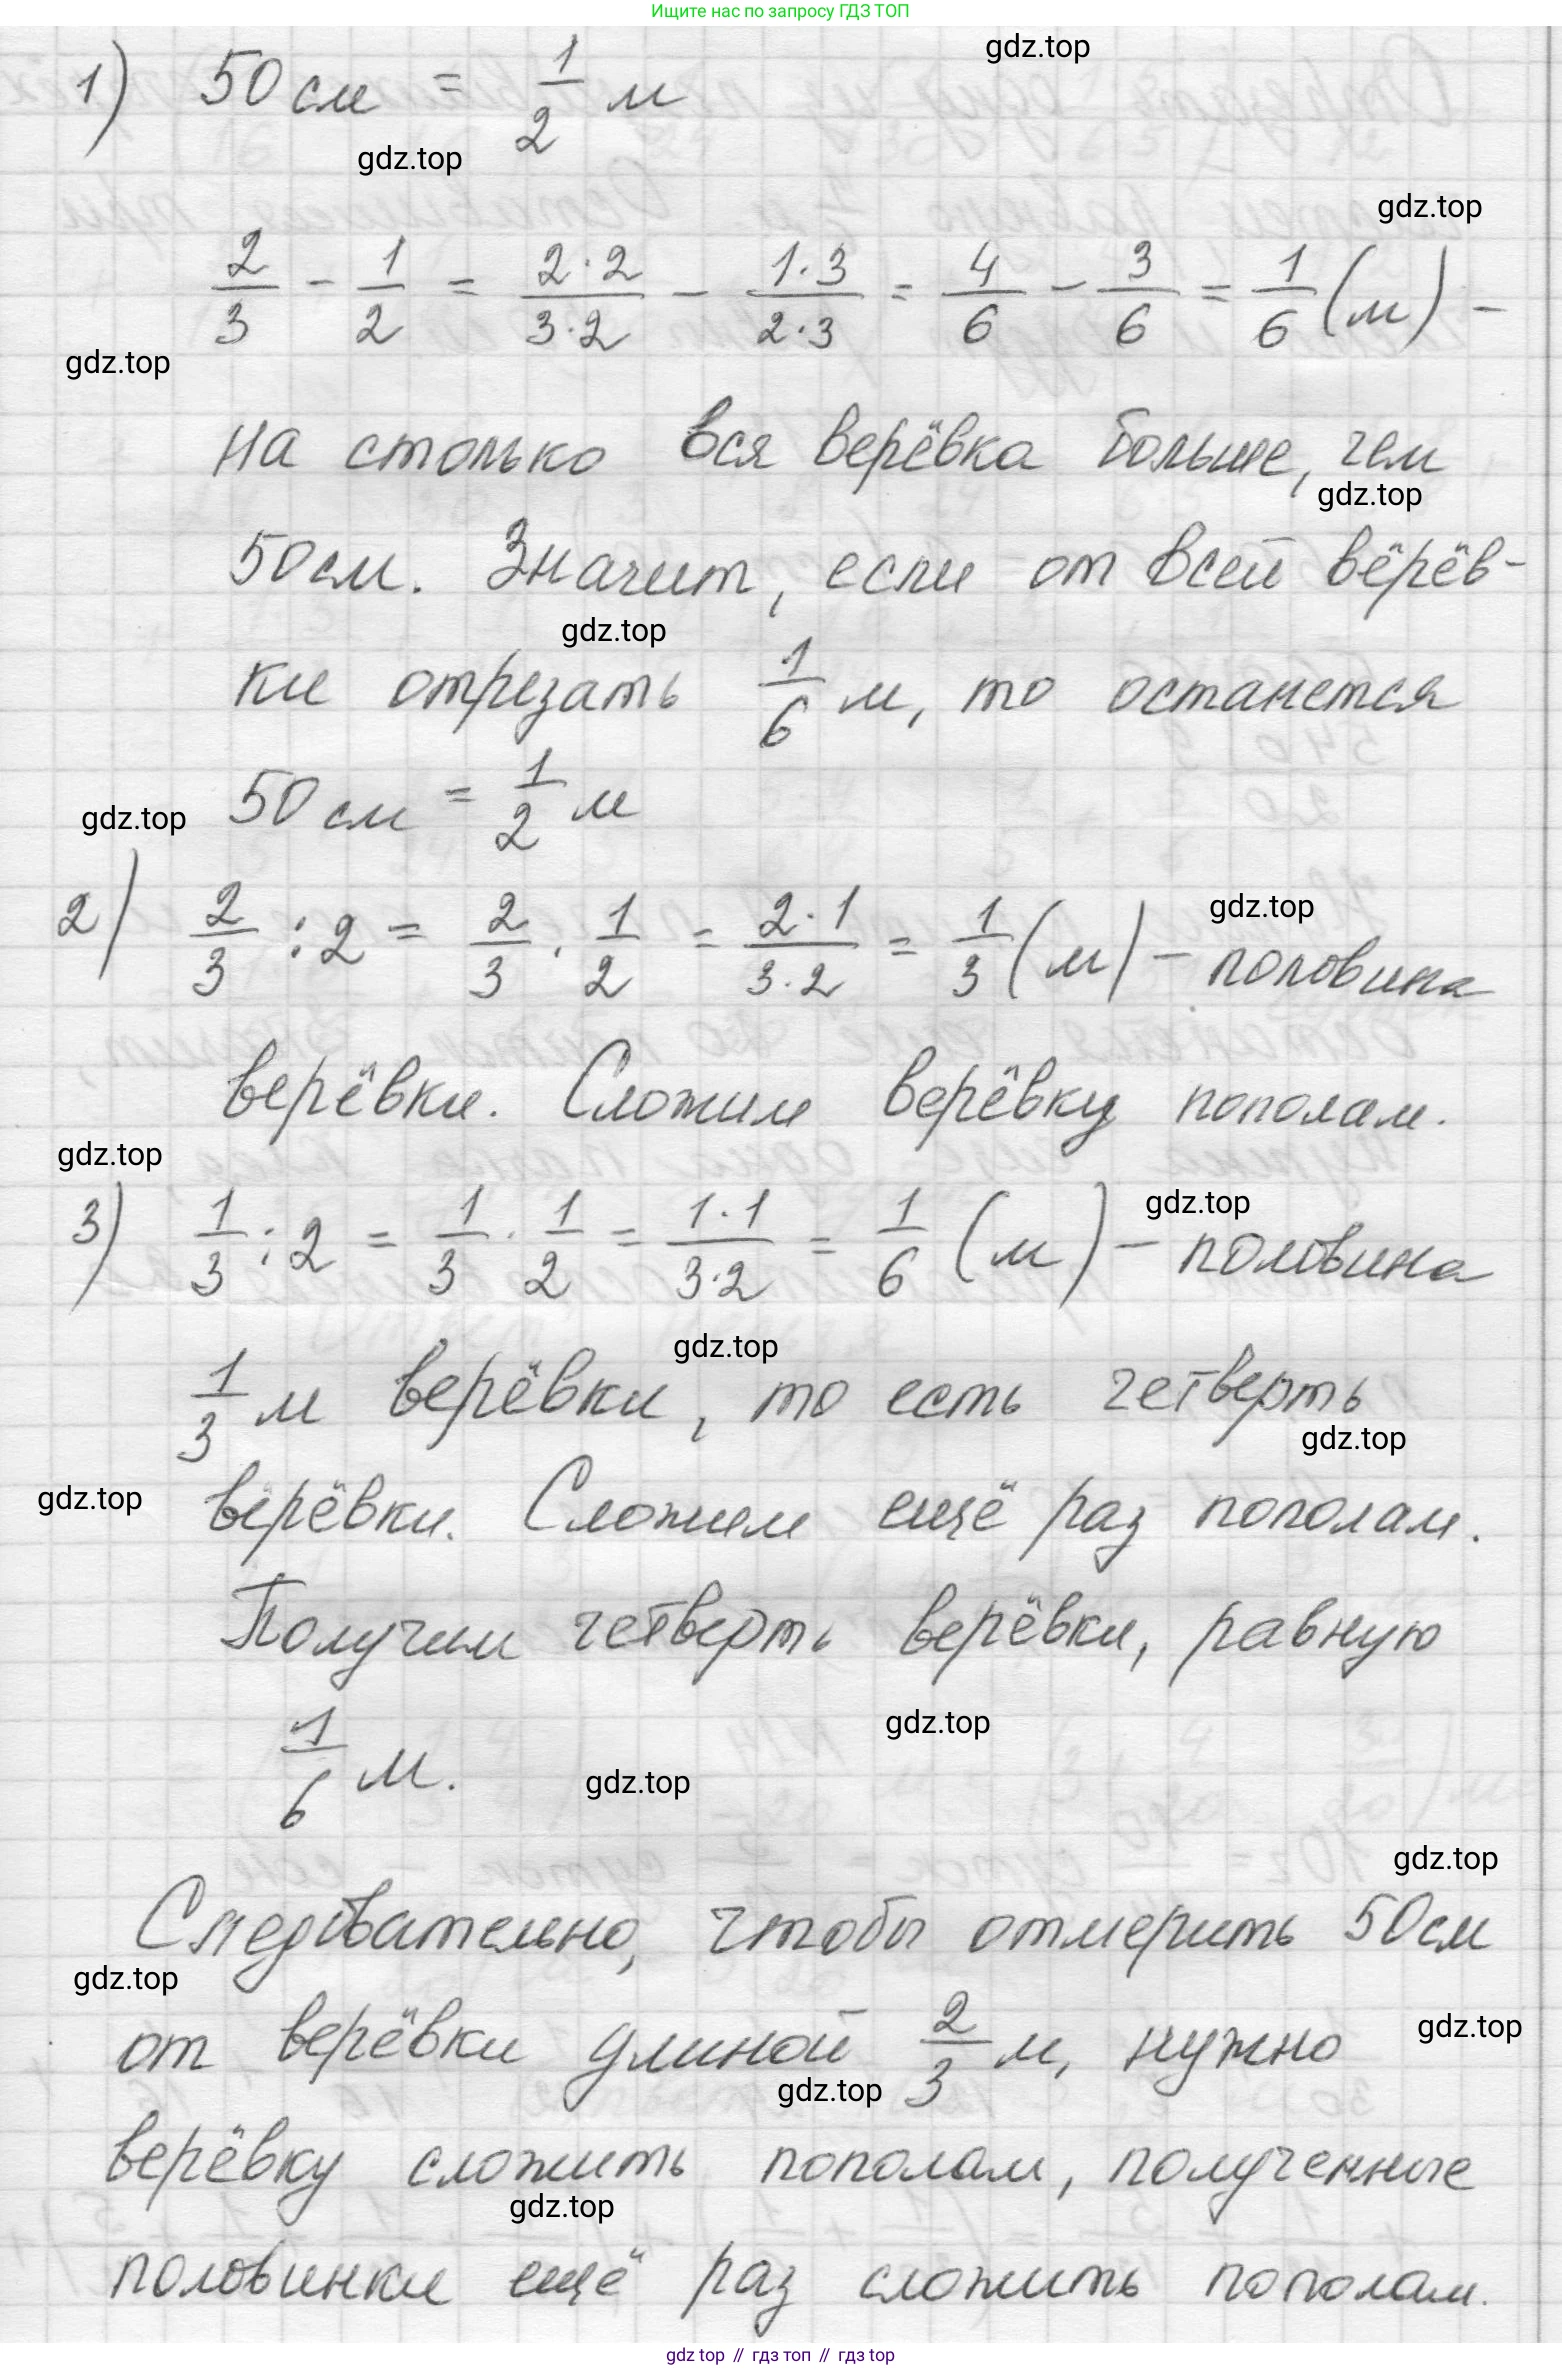 Ищите нас по запросу ГДЗ ТОП
gdz.top
1) 50 см = 1/2 м
gdz.top
gdz.top
2/3 - 1/2 = 2·2/3·2 - 1·3/2·3 = 4/6 - 3/6 = 1/6 (м) -
gdz.top
на столько вся верёвка больше, чем
gdz.top
50 см. Значит, если от всей вёрёв-
gdz.top
ки отрезать 1/6 м, то останется
50 см = 1/2 м
gdz.top
2) 2/3 : 2 = 2/3 · 1/2 = 2·1/3·2 = 1/3 (м) - половина
gdz.top
верёвки. Сложим верёвку пополам.
gdz.top
gdz.top
3) 1/3 : 2 = 1/3 · 1/2 = 1·1/3·2 = 1/6 (м) - половина
gdz.top
1/3 м верёвки, то есть четверть
gdz.top
gdz.top
верёвки. Сложим ещё раз пополам.
Получим четверть верёвки, равную
gdz.top
1/6 м.
gdz.top
gdz.top
Следовательно, чтобы отмерить 50 см
gdz.top
от верёвки длиной 2/3 м, нужно
gdz.top
gdz.top
верёвку сложить пополам, полученные
gdz.top
половинки ещё раз сложить пополам.
gdz top // гдз топ // гдз top